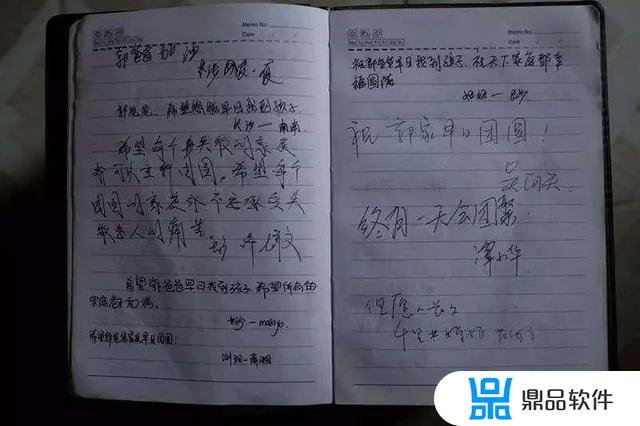 Memo No.
Date
郭爸爸 加油
长沙网友·夏
郭爸爸，希望您能早日找到孩子
长沙一南南
希望每个丢失孩的家庭
都可以重新团圆。希望每个
团圆的家庭永不要承受失
散亲人的痛苦。
希望郭爸爸早日找到孩子，希望所有的
家庭都和满。
长沙一maky.
希望郭爸爸家庭早日团圆！
浏阳一蒲湘
Memo No.
Date
祝郭爸爸早日找到孩子，祝天下家庭都幸
福圆满
祝郭家早日团圆！
吴阿天
终有一天会团聚！
谭小华
但愿人长久
千里共婵娟
鼎品软件